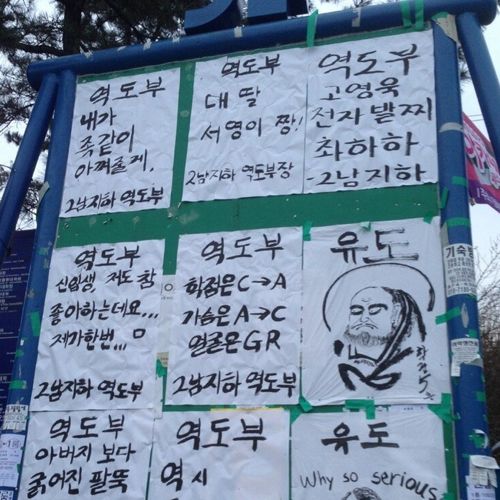 역도부
내가
족같이
아껴줄게.
2남지하 역도부
역도부
대 딸
서영이 짱!
2남지하 역도부장
역도부
고영욱
전자발찌
최하하
-2남지하
역도부
신입생, 저도 참
좋아하는데요...
제가한번,,, ㅁ
2남지하 역도부
역도부
학점은 C→A
가슴은 A→C
얼굴은 GR
2남지하 역도부
유도
역도부
아버지 보다
굵어진 팔뚝
역도부
역시
유도
Why so serious